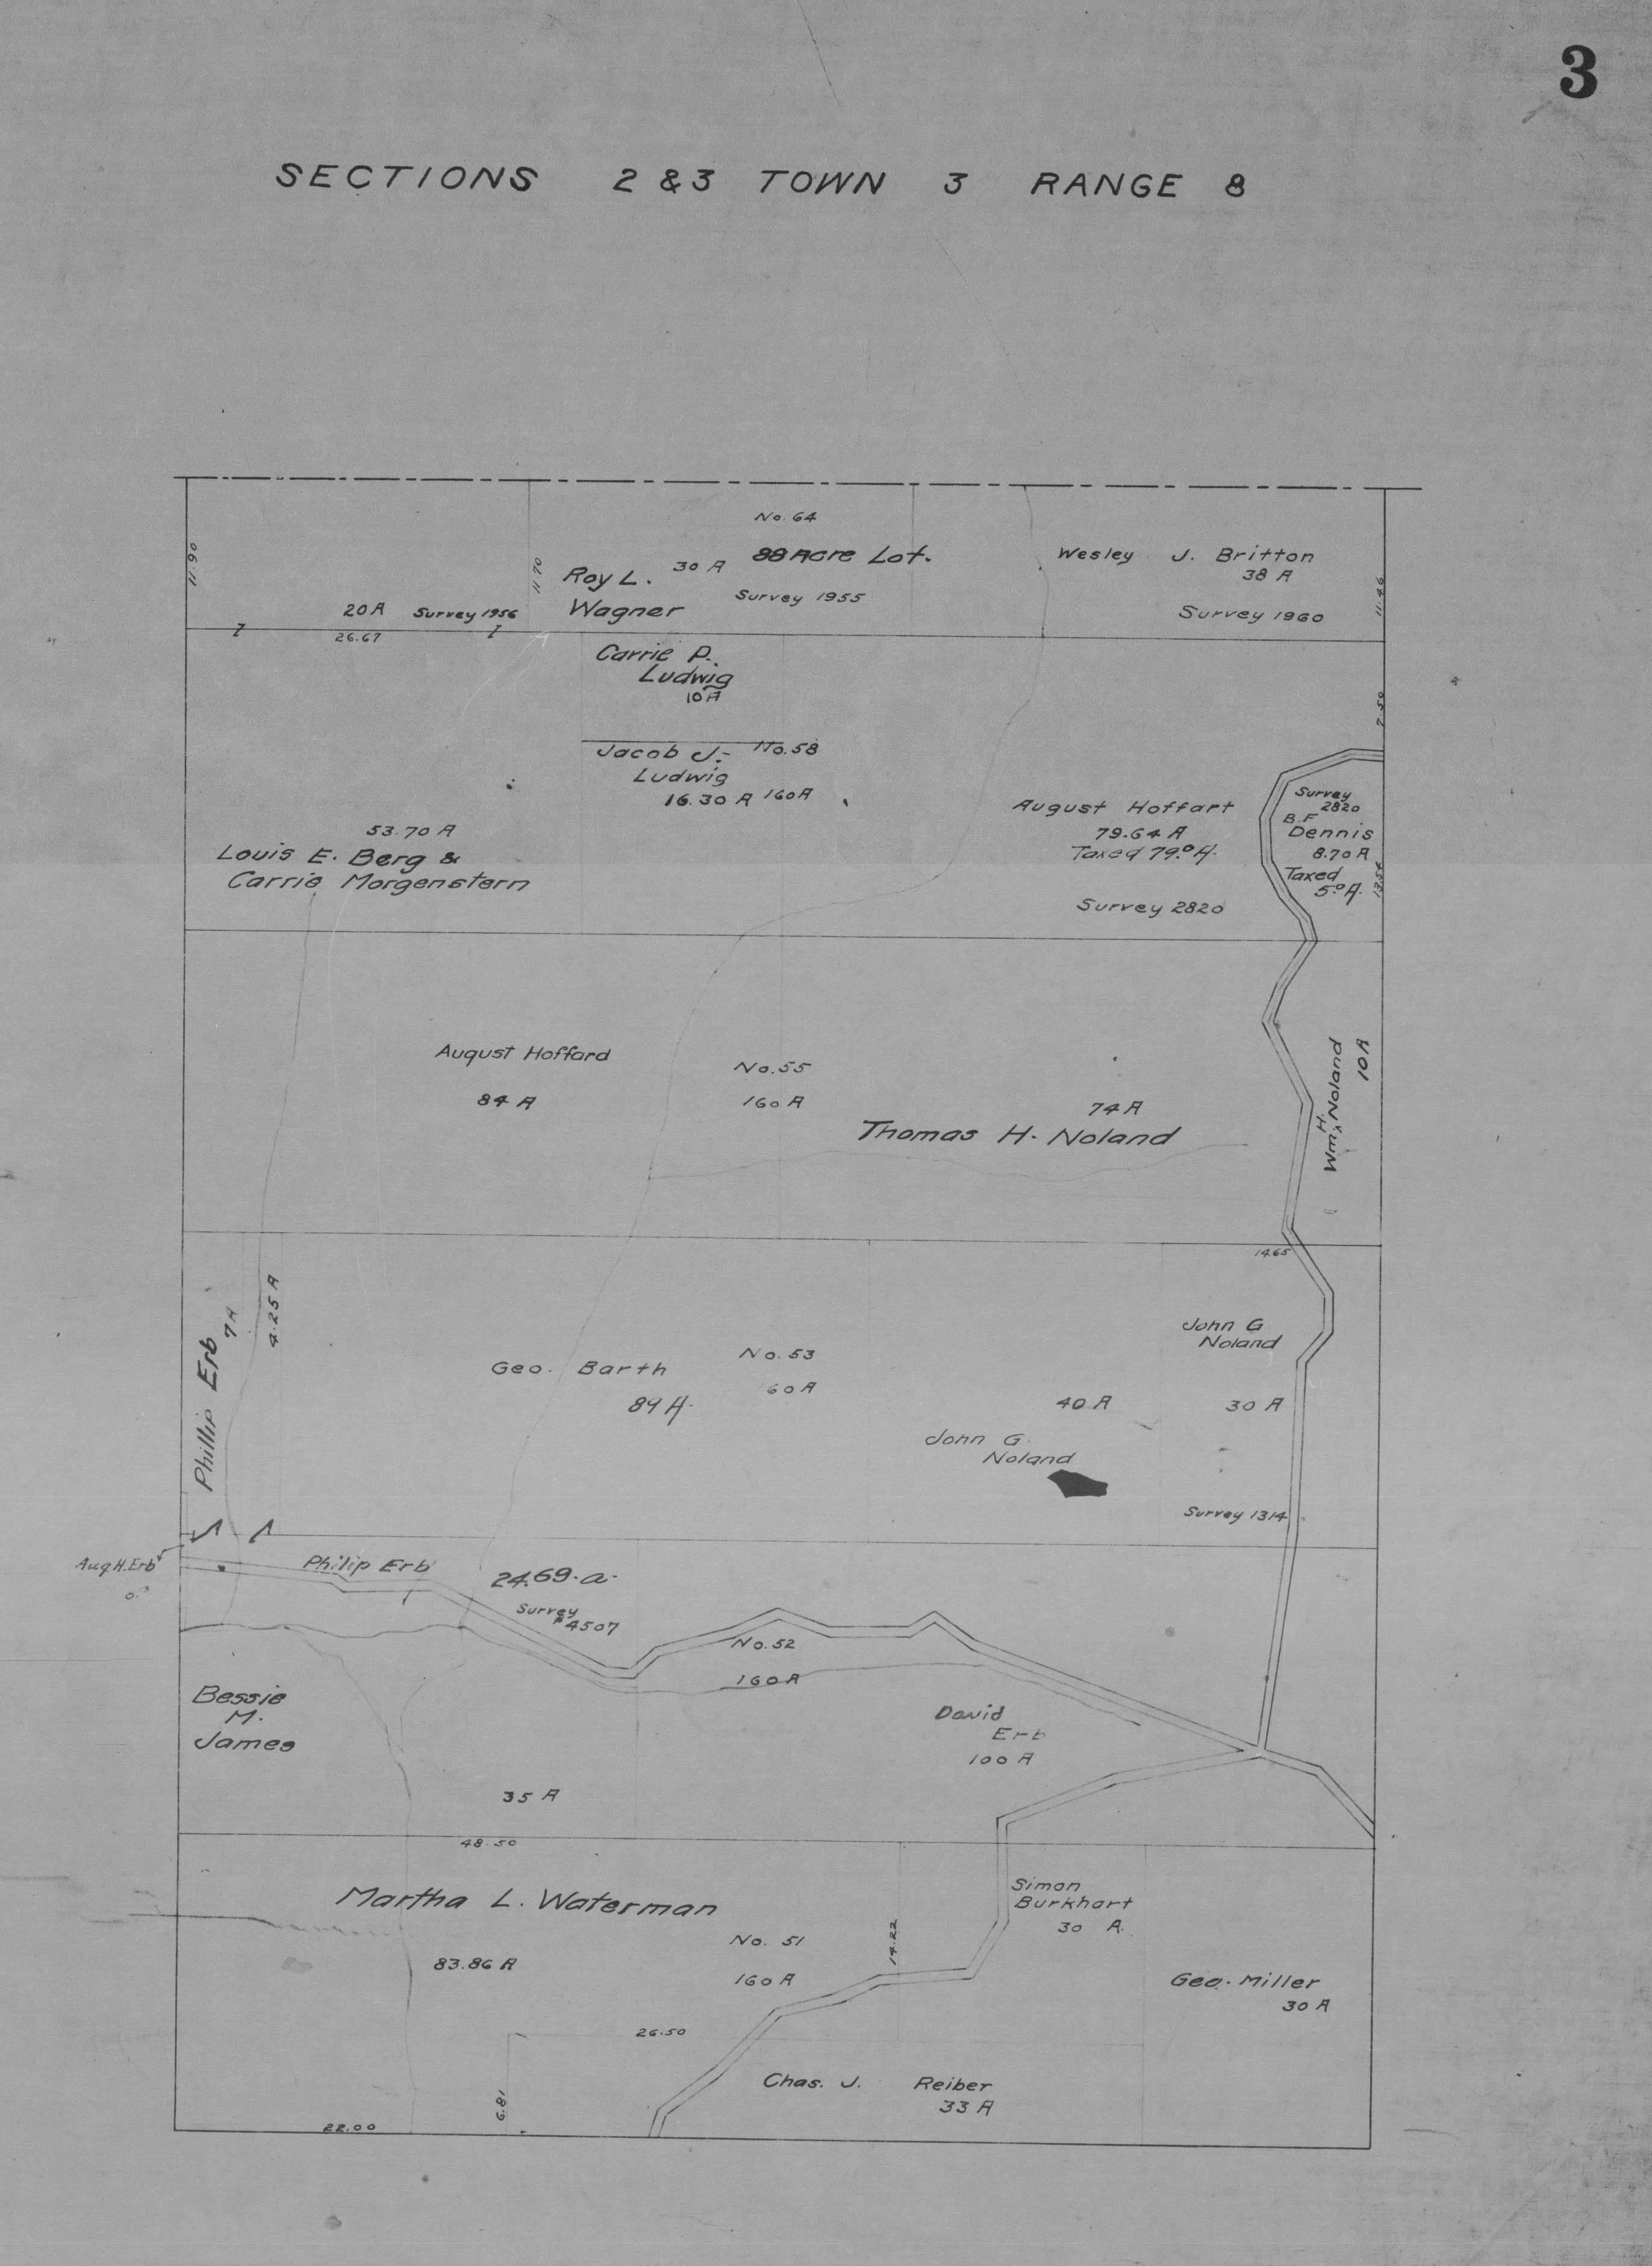 3
SECTIONS 2 & 3 TOWN 3 RANGE 8
11.90
20 A Survey 1956
26.67
11.70
Roy L.
Wagner
30 A
No. 64
88 Acre Lot.
Survey 1955
Wesley J. Britton
38 A
Survey 1960
11.46
Carrie P.
Ludwig
10 A
Jacob J.
Ludwig
16.30 A
No. 58
160 A
53.70 A
Louis E. Berg &
Carrie Morgenstern
August Hoffart
79.64 A
Taxed 79.º A.
Survey 2820
7.50
Survey
2820
B.F
Dennis
8.70 A
Taxed
5.º A.
13.54
August Hoffard
84 A
No. 55
160 A
74 A
Thomas H. Noland
Wm. H. Noland
10 A
14.65
Phillip Erb
7 A
4.25 A
Geo. Barth
89 A.
No. 53
60 A
40 A
John G.
Noland
John G
Noland
30 A
Survey 1314
Aug H. Erb
Philip Erb
24.69.a.
Survey
#4507
No. 52
160 A
Bessie
M.
James
35 A
David
Erb
100 A
48.50
Martha L. Waterman
83.86 A
No. 51
160 A
14.22
Simon
Burkhart
30 A.
Geo. Miller
30 A
26.50
6.81
Chas. J. Reiber
33 A
22.00